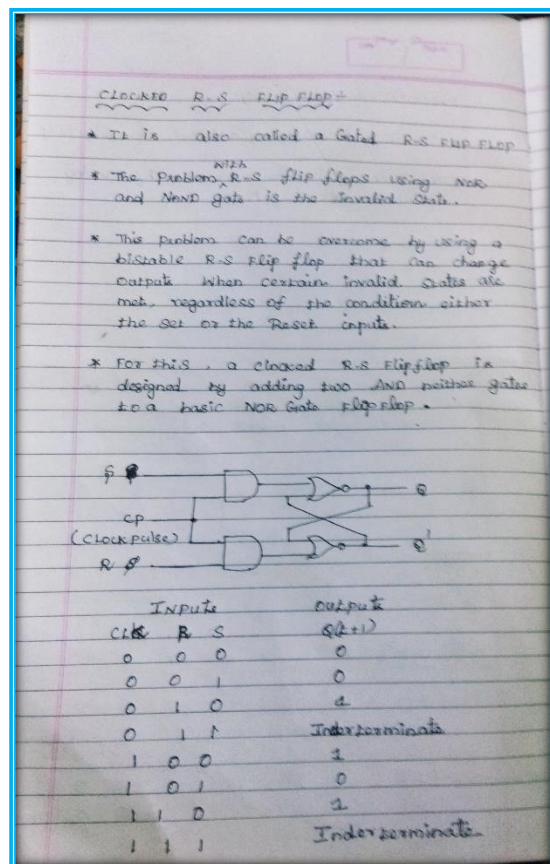 CLOCKED R-S FLIP FLOP:-
* It is also called a Gated R-S FLIP FLOP
* The problem with R-S flip flops using NOR
and NAND gate is the Invalid State.
* This problem can be overcome by using a
bistable R-S Flip flop that can change
outputs when certain invalid states are
met, regardless of the condition either
the Set or the Reset inputs.
* For this, a clocked R-S Flipflop is
designed by adding two AND neither gates
to a basic NOR Gate Flip Flop.
S
Q
CP
(Clock pulse)
Q'
R
INPUTS OUTPUTS
CLK R S Q(t+1)
0 0 0 0
0 0 1 0
0 1 0 1
0 1 1 Inderterminate
1 0 0 1
1 0 1 0
1 1 0 1
1 1 1 Inderterminate